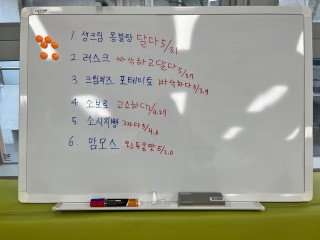 1 생크림 몽블랑 달다 5/3.1
2 러스크 바삭하고 달다 5/3.7
3 크림치즈 포테이토 바삭하다 5/3.9
4 소보로 고소하다
5 소시지빵 짜다 5/4.6
6. 맘모스 5/2.0